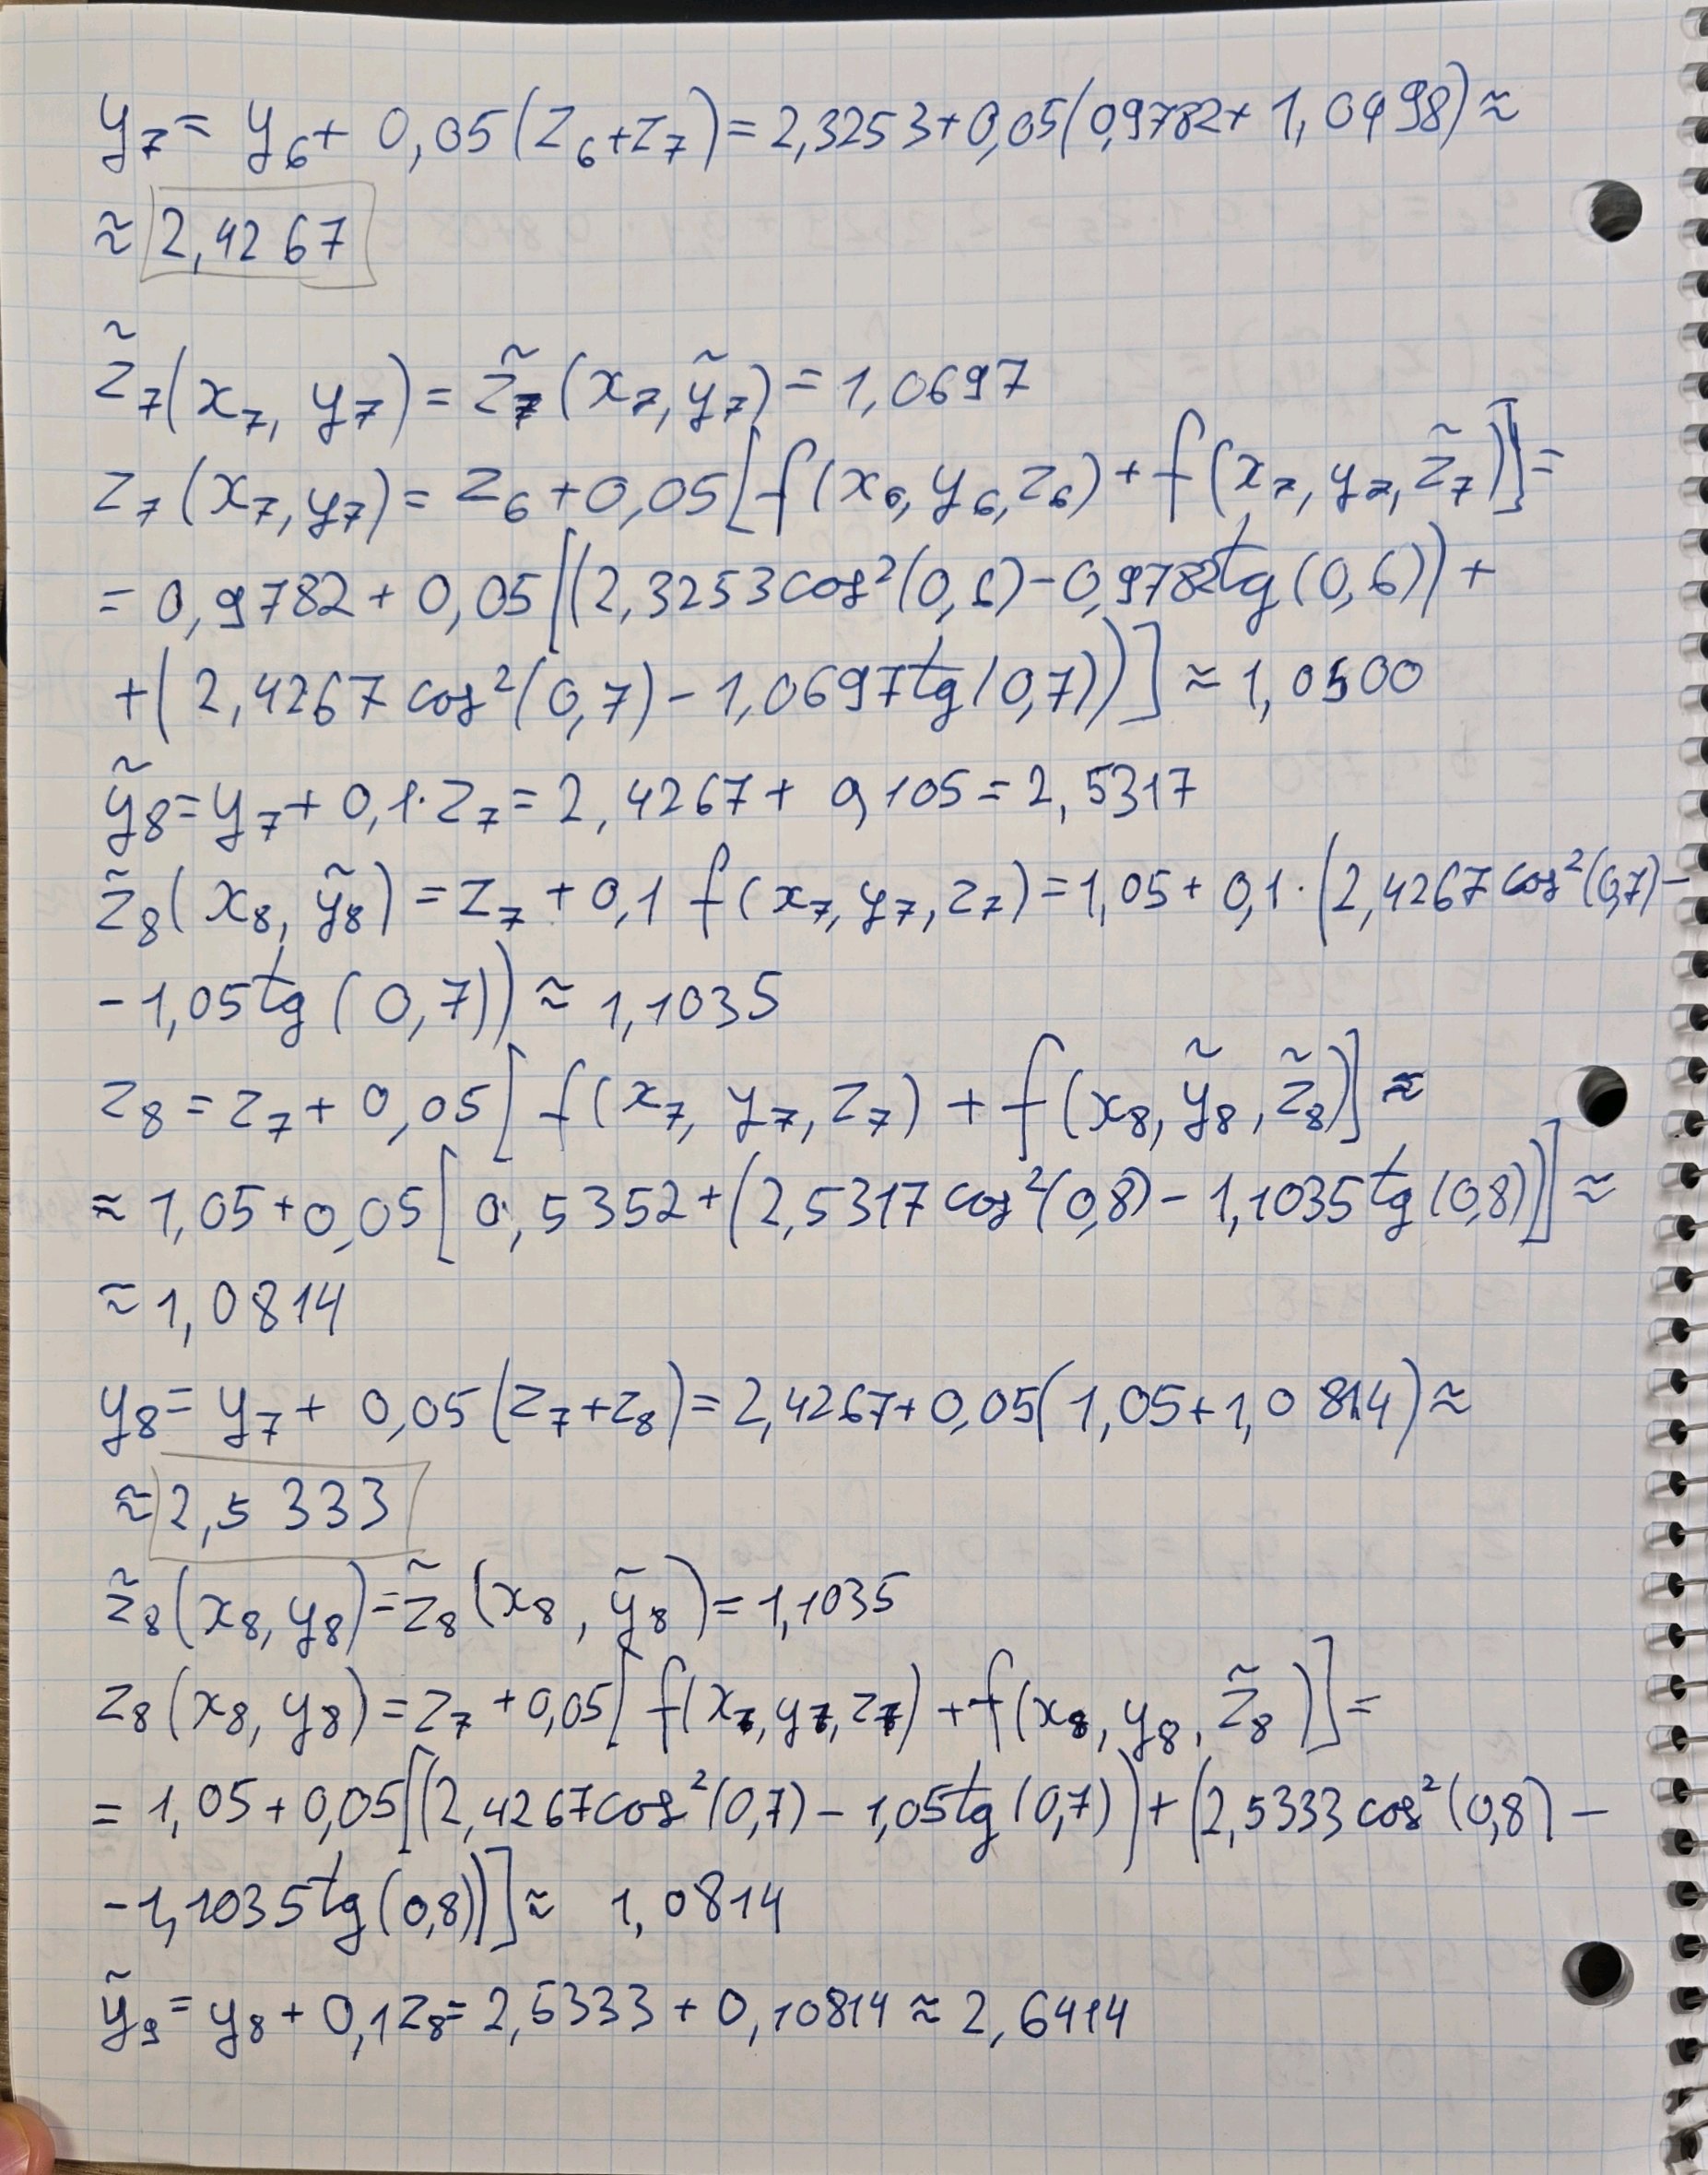 y₇ = y₆ + 0,05(z₆+z₇) = 2,3253+0,05(0,9782+1,0498) ≈
≈ 2,4267
z̃₇(x₇, y₇) = z̃₇(x₇, ỹ₇) = 1,0697
z₇(x₇, y₇) = z₆ + 0,05[f(x₆, y₆, z₆) + f(x₇, y₇, z̃₇)] =
= 0,9782 + 0,05[(2,3253cos²(0,6) - 0,9782tg(0,6)) +
+ (2,4267 cos²(0,7) - 1,0697tg(0,7))] ≈ 1,0500
ỹ₈ = y₇ + 0,1·z₇ = 2,4267 + 0,105 = 2,5317
z̃₈(x₈, ỹ₈) = z₇ + 0,1 f(x₇, y₇, z₇) = 1,05 + 0,1·(2,4267 cos²(0,7) -
- 1,05tg(0,7)) ≈ 1,1035
z₈ = z₇ + 0,05[f(x₇, y₇, z₇) + f(x₈, ỹ₈, z̃₈)] ≈
≈ 1,05+0,05[0,5352+(2,5317 cos²(0,8) - 1,1035tg(0,8))] ≈
≈ 1,0814
y₈ = y₇ + 0,05(z₇+z₈) = 2,4267+0,05(1,05+1,0814) ≈
≈ 2,5333
z̃₈(x₈, y₈) = z̃₈(x₈, ỹ₈) = 1,1035
z₈(x₈, y₈) = z₇ + 0,05[f(x₇, y₇, z₇) + f(x₈, y₈, z̃₈)] =
= 1,05+0,05[(2,4267cos²(0,7) - 1,05tg(0,7)) + (2,5333cos²(0,8) -
- 1,1035tg(0,8))] ≈ 1,0814
ỹ₉ = y₈ + 0,1z₈ = 2,5333 + 0,10814 ≈ 2,6414